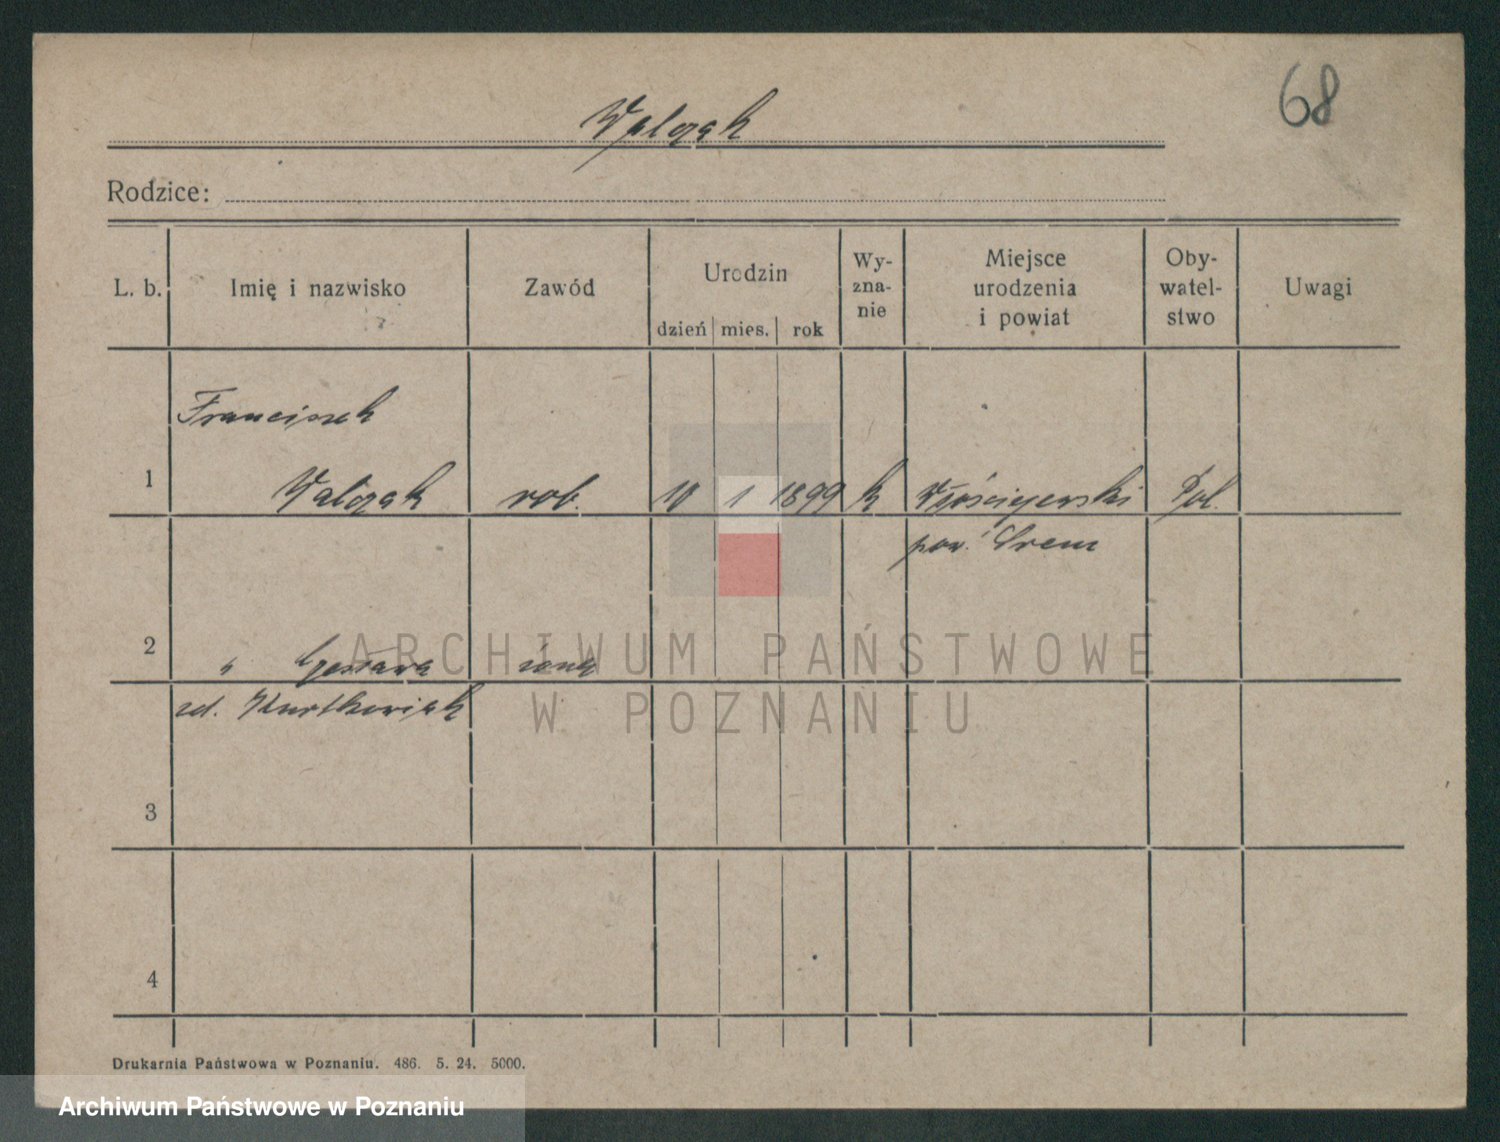 68
Walczak
Rodzice:
L. b.
Imię i nazwisko
Zawód
Urodzin
dzień mies. rok
Wy-
zna-
nie
Miejsce
urodzenia
i powiat
Oby-
watel-
stwo
Uwagi
Franciszek
1 Walczak rob. 10 1 1899 k Włościejewski Pol.
pow. Śrem
2 " żona
zd. Kurtkowiak
3
4
ARCHIWUM PAŃSTWOWE
W POZNANIU
Drukarnia Państwowa w Poznaniu. 486. 5. 24. 5000.
Archiwum Państwowe w Poznaniu